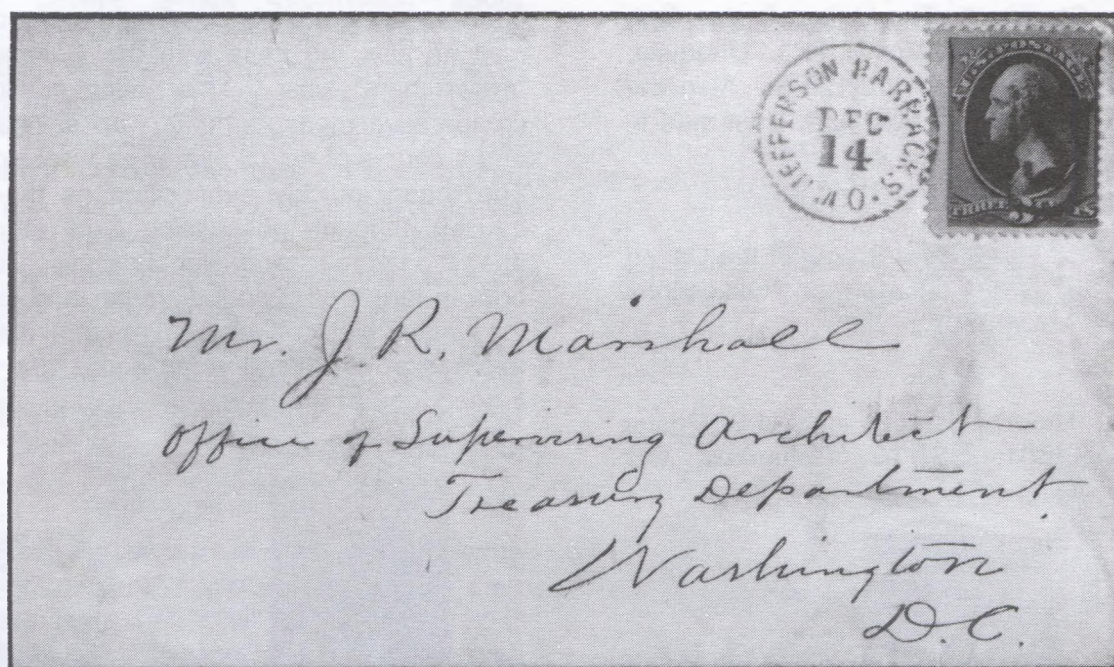 JEFFERSON BARRACKS. MO.
DEC
14
U.S. POSTAGE
THREE 3 CENTS
Mr. J. R. Marshall
Office of Supervising Architect
Treasury Department
Washington
D.C.